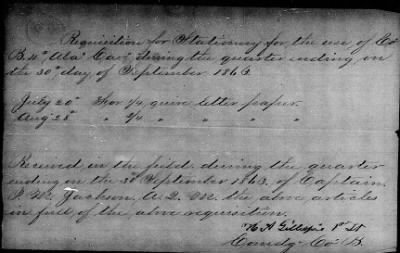 Requisition for Stationery for the use of Co
B. 4th Ala Cav. during the quarter ending on
the 30th day of September 1863.
July 20th For 1/4 quire letter paper.
Aug 28th " 3/4 " " "
Received in the field during the quarter
ending on the 30th September 1863, of Captain
Jackson, A. Q. M. the above articles
in full of the above requisition.
Gillespie 1st Lt
Comdg Co B.